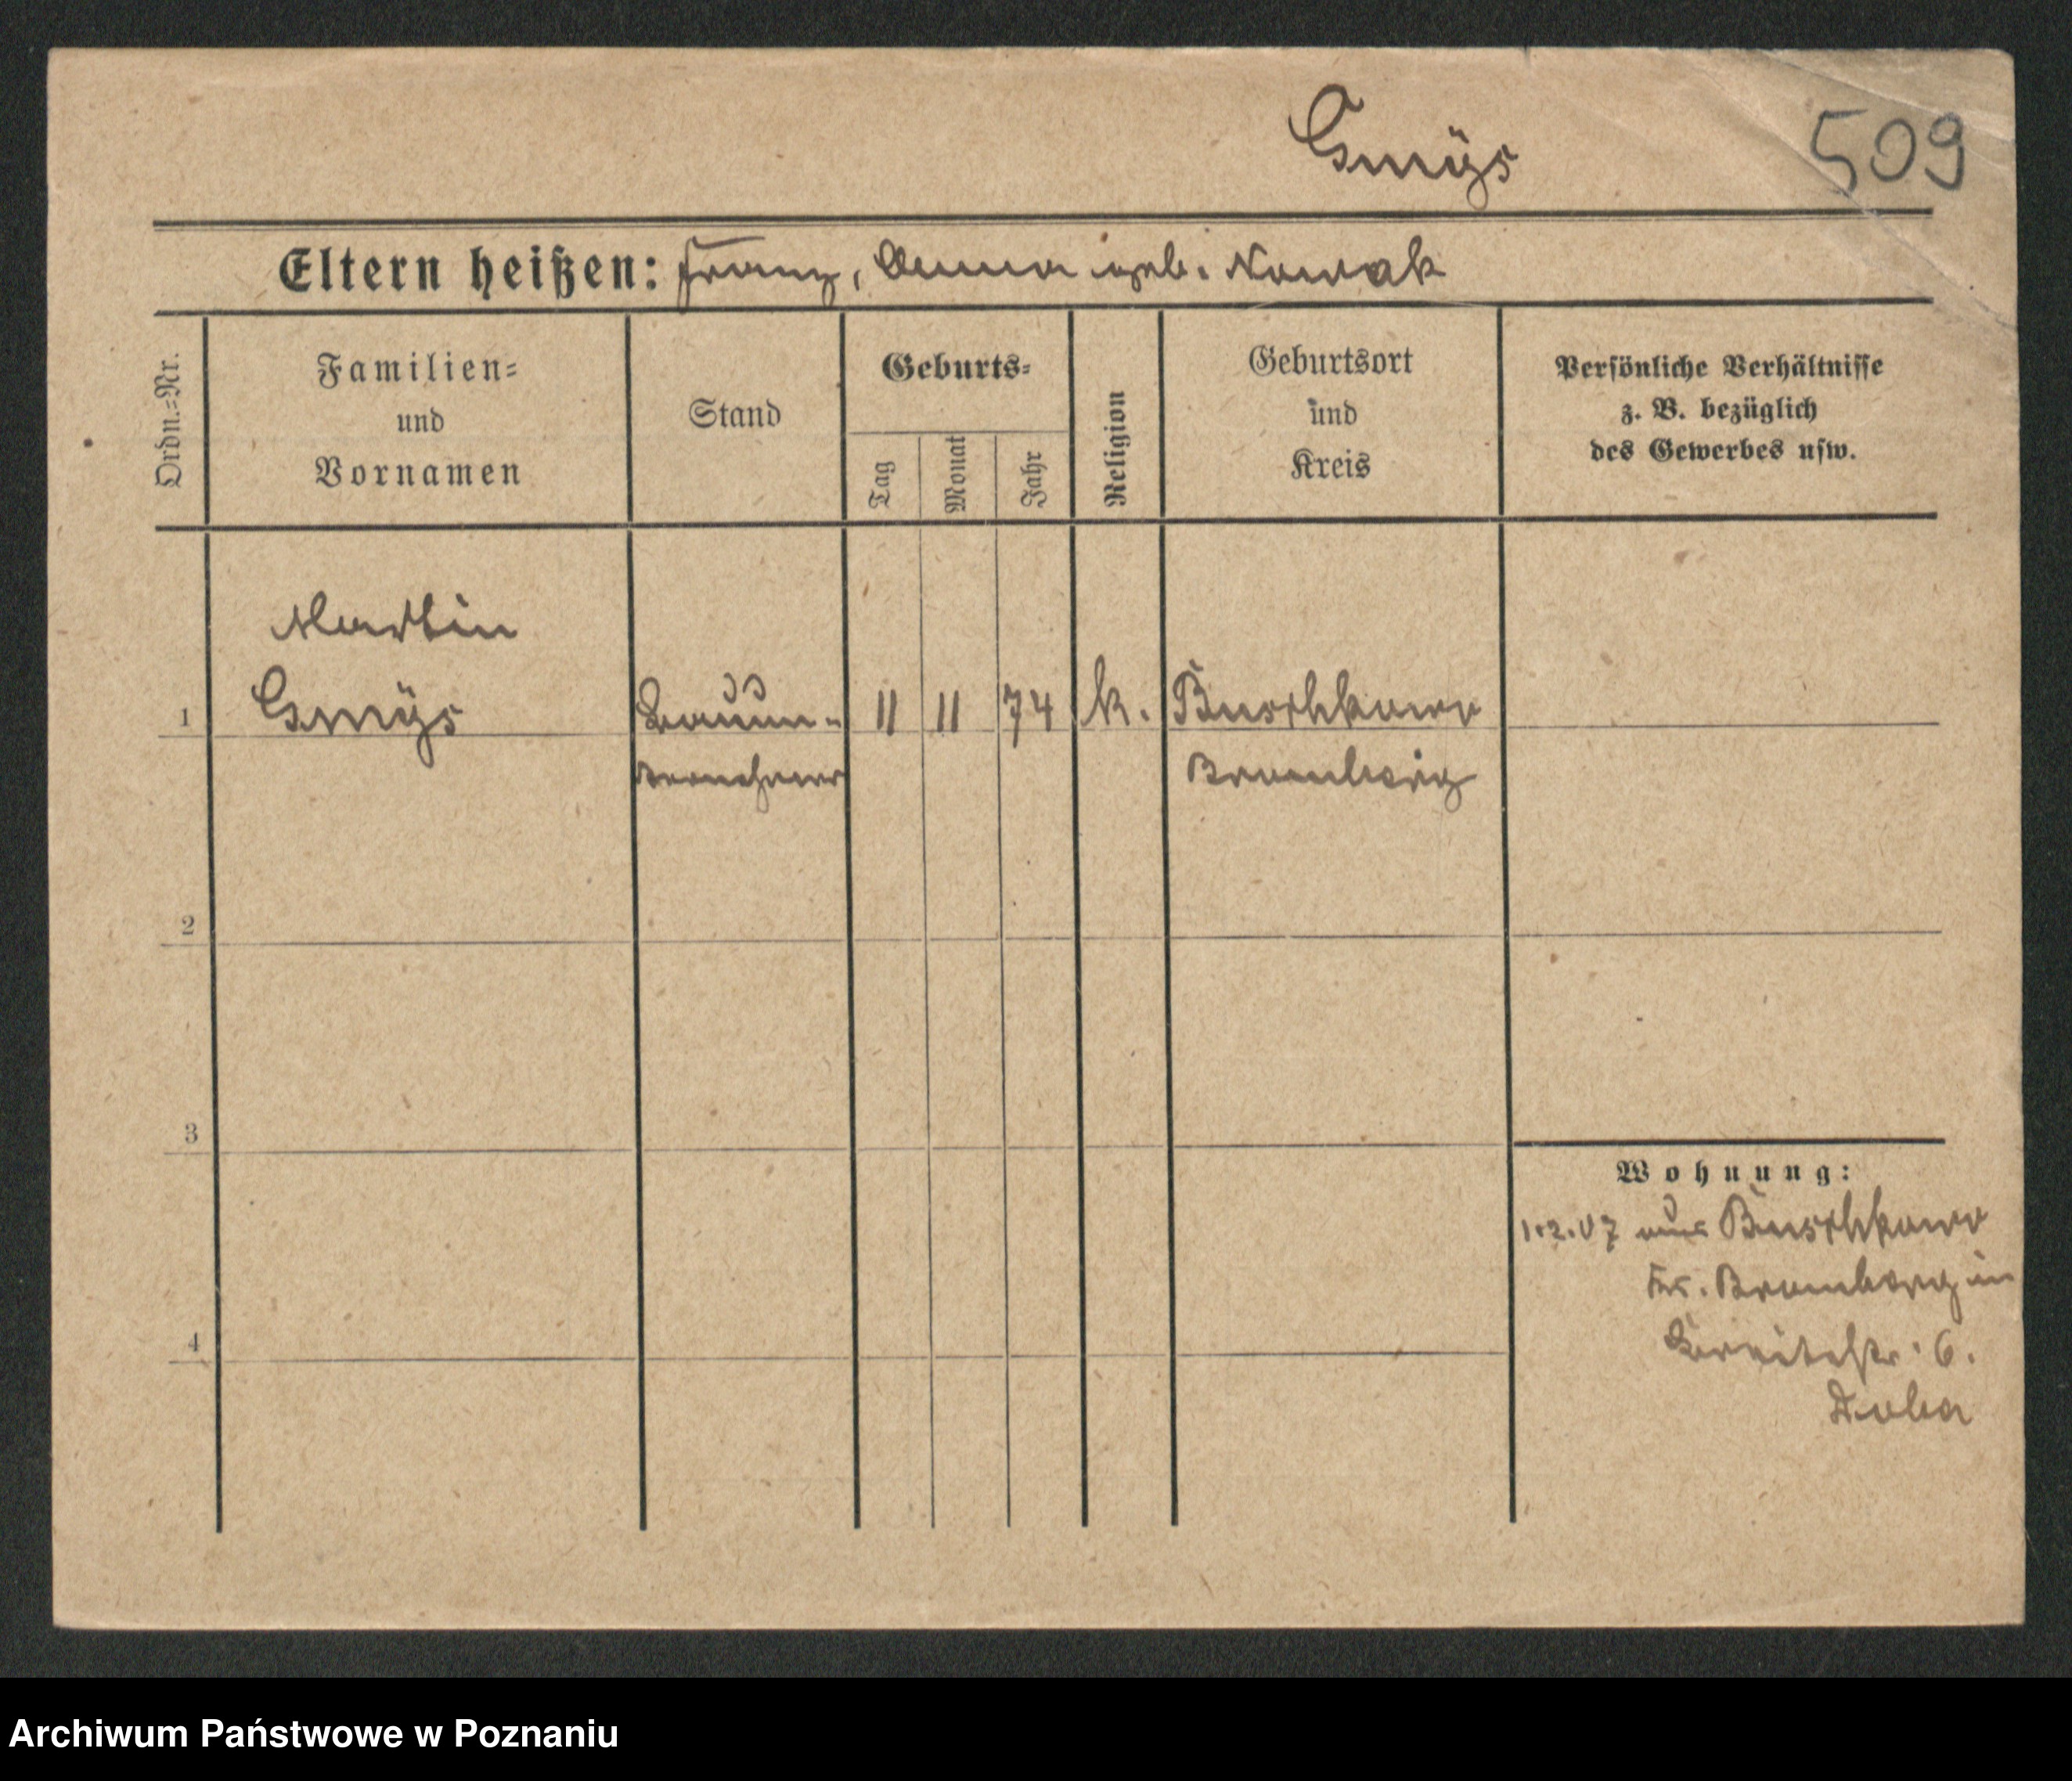 Gmÿs
509
Eltern heißen: Franz, Anna geb. Nowak
Ordn.=Nr.
Familien=
und
Vornamen
Stand
Geburts=
Tag
Monat
Jahr
Religion
Geburtsort
und
Kreis
Persönliche Verhältnisse
z. B. bezüglich
des Gewerbes usw.
Martin
1 Gmÿs 11 11 74 k. Buschkowo
Bromberg
2
3
4
Wohnung:
1.2.07 aus Buschkowo
Kr. Bromberg in
Breitestr. 6.
Archiwum Państwowe w Poznaniu